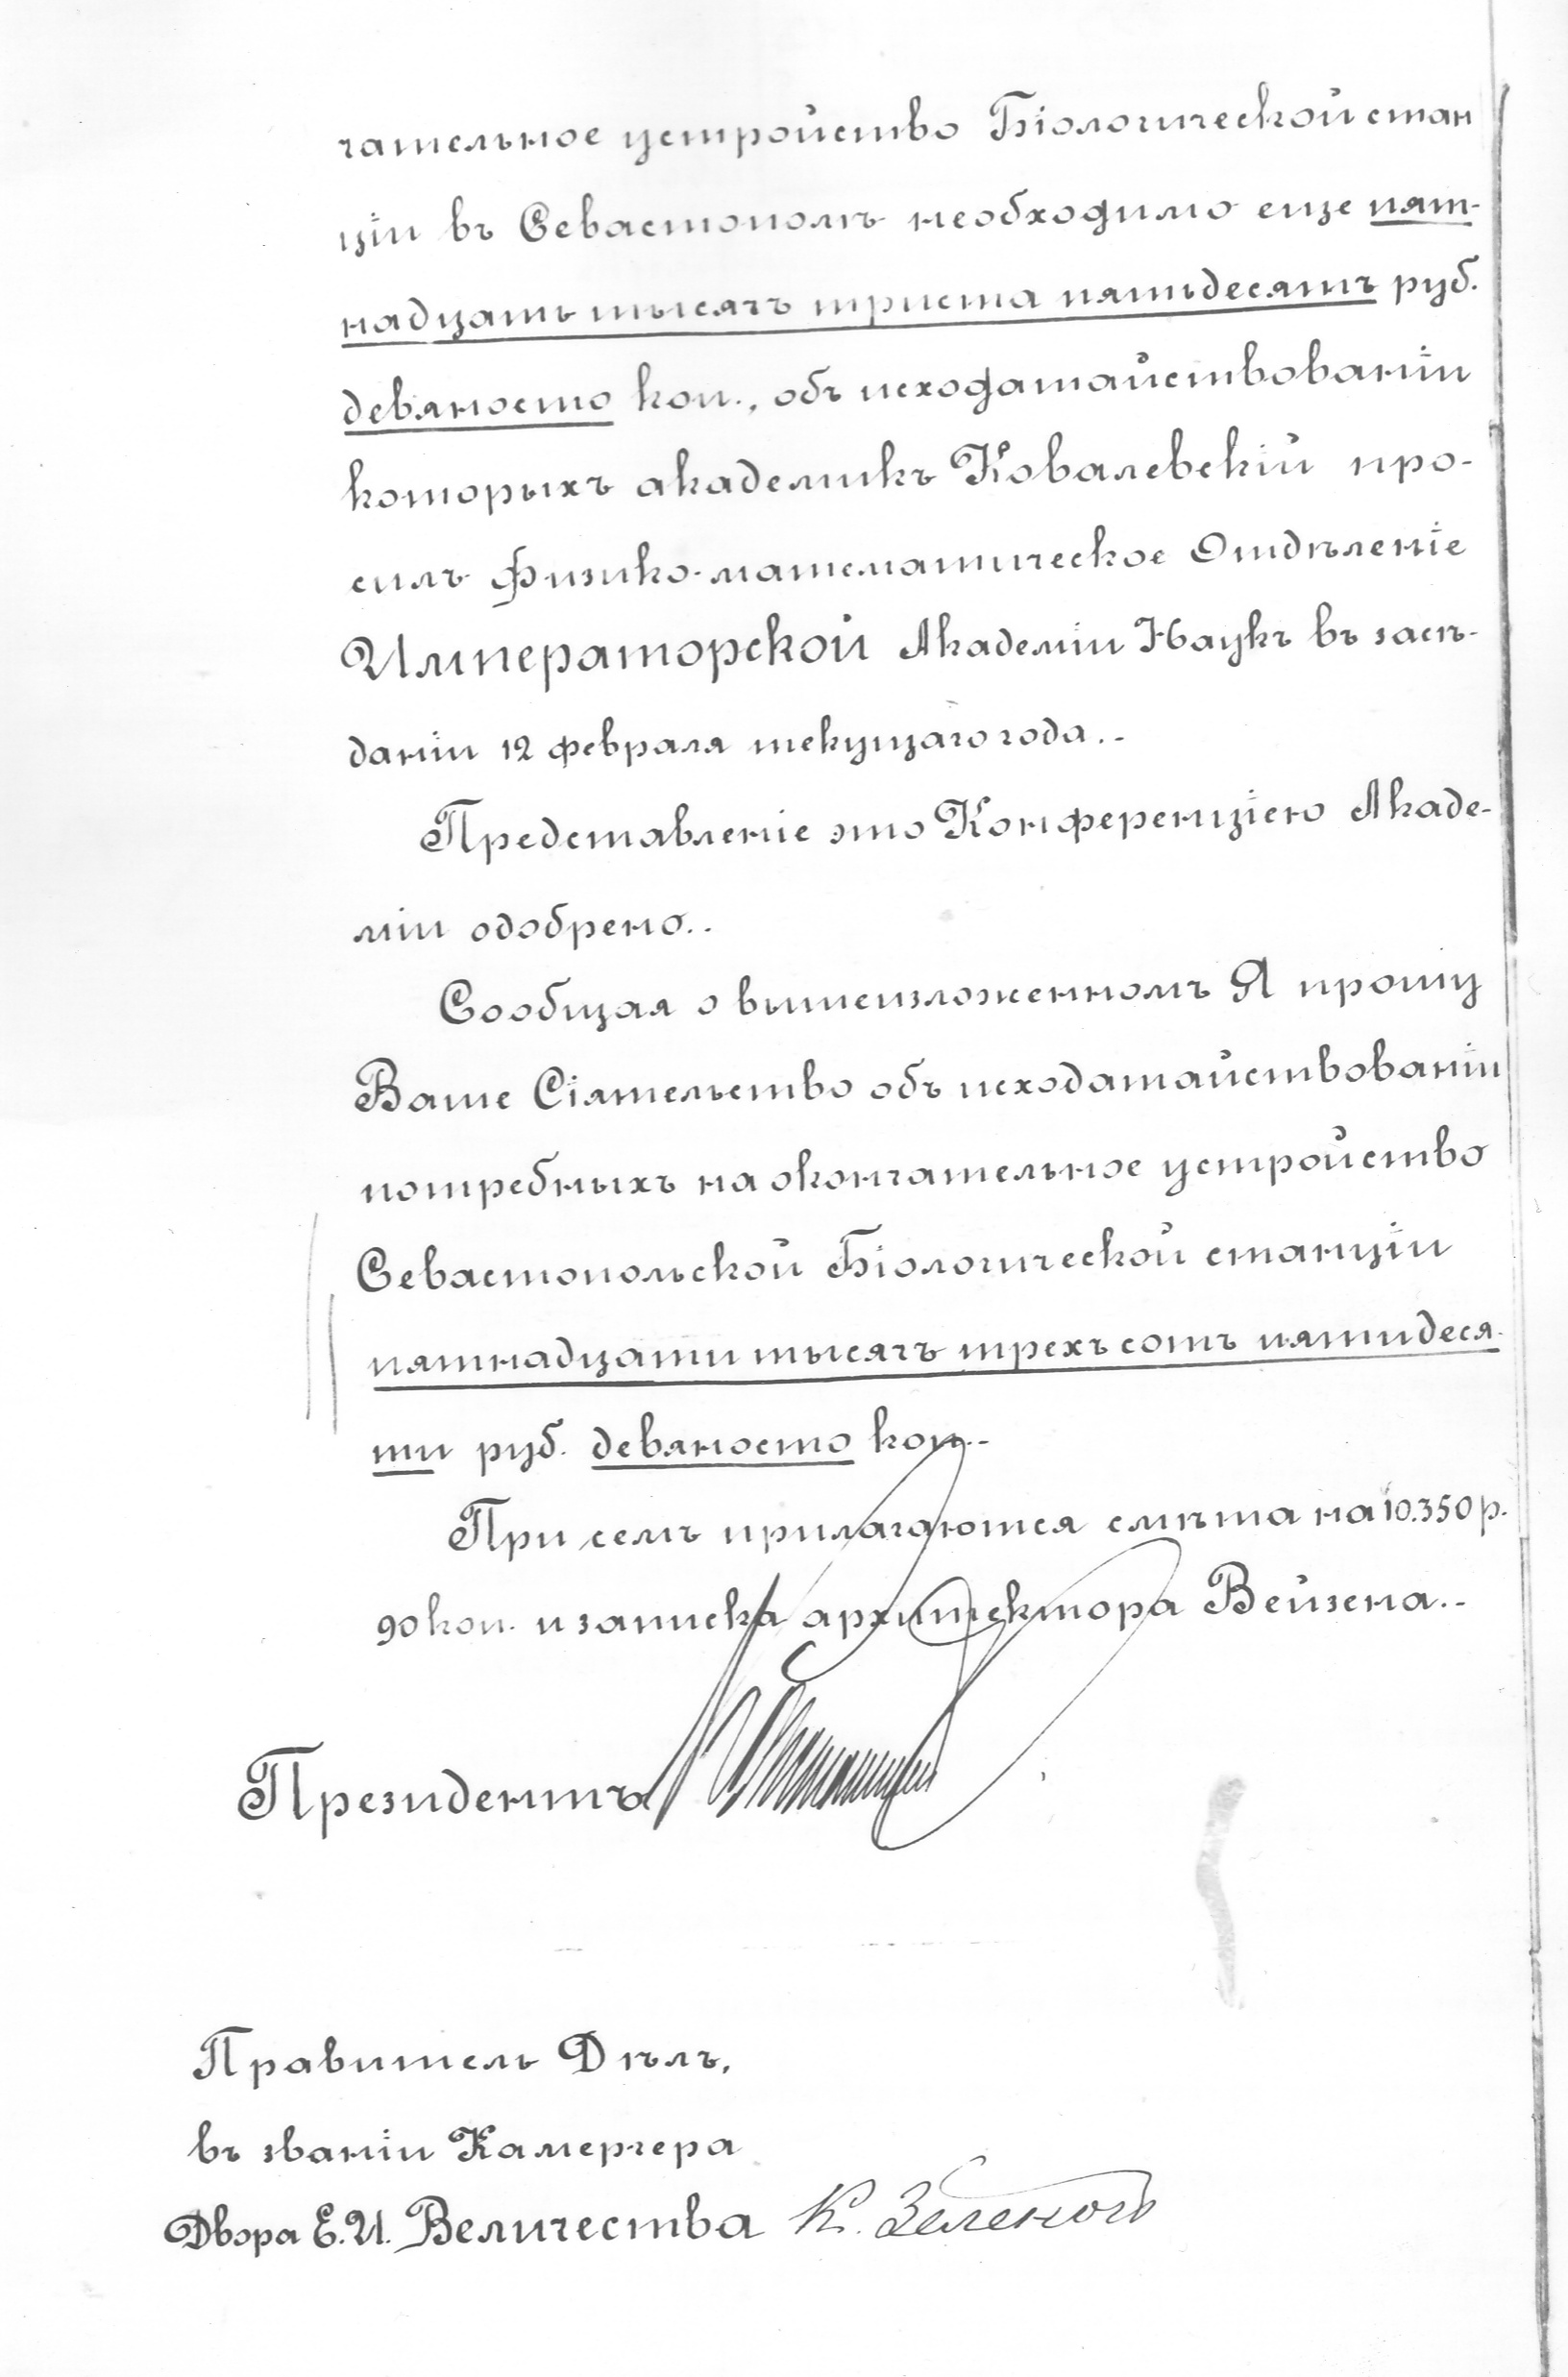 чательное устройство Біологической стан
ціи въ Севастополѣ необходимо еще пят-
надцать тысячъ триста пятьдесятъ руб.
девяносто коп., объ исходатайствованіи
которыхъ академикъ Ковалевскій про-
силъ Физико-математическое Отдѣленіе
Императорской Академіи Наукъ въ засѣ-
даніи 12 февраля текущаго года.-
Представленіе это Конференціею Акаде-
міи одобрено.-
Сообщая о вышеизложенномъ Я прошу
Ваше Сіятельство объ исходатайствованіи
потребныхъ на окончательное устройство
Севастопольской Біологической станціи
пятнадцати тысячъ трехъ сотъ пятидеся-
ти руб. девяносто коп.-
При семъ прилагаются смѣта на 10.350 р.
90 коп. и записка архитектора Вейзена.-
Президентъ
Правитель Дѣлъ,
въ званіи Камергера
Двора Е.И. Величества К. Зеленой